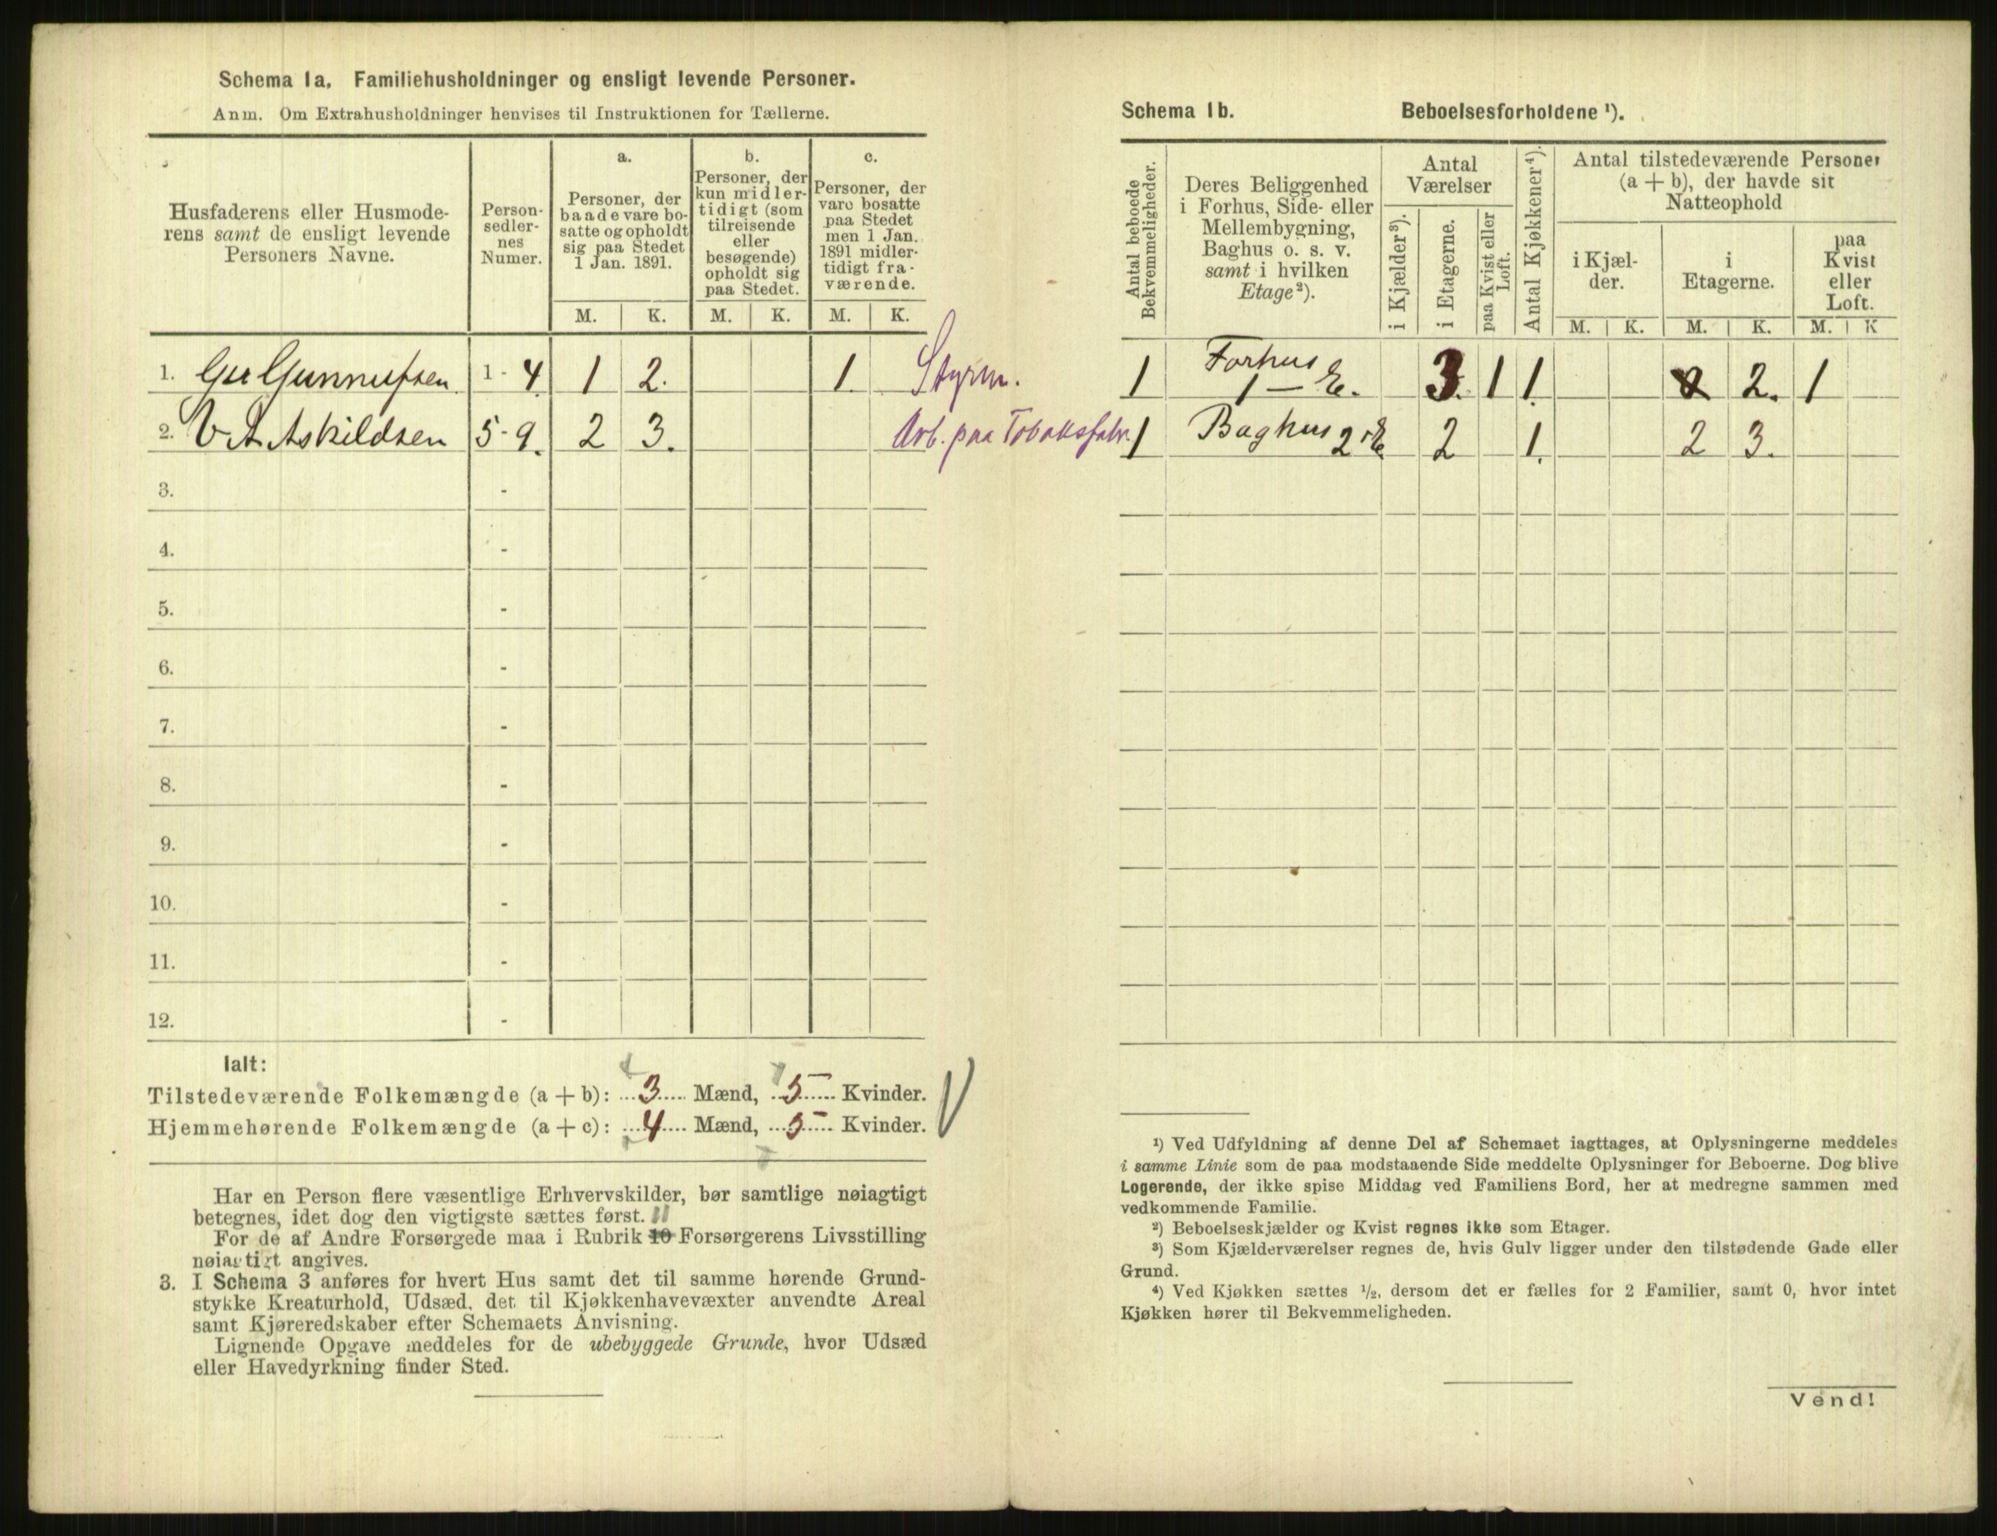 Schema 1a. Familiehusholdninger og ensligt levende Personer.
Anm. Om Extrahusholdninger henvises til Instruktionen for Tællerne.
Husfaderens eller Husmode-
rens samt de ensligt levende
Personers Navne.
Person-
sedler-
nes
Numer.
a.
Personer, der
baade vare bo-
satte og opholdt
sig paa Stedet
1 Jan. 1891.
b.
Personer, der
kun midler-
tidigt (som
tilreisende
eller
besøgende)
opholdt sig
paa Stedet.
c.
Personer, der
vare bosatte
paa Stedet
men 1 Jan.
1891 midler-
tidigt fra-
værende.
M. K. M. K. M. K.
1. Gunnufsen 1 - 4. 1 2. 1. Styrm.
2. V. A. Askildsen 5 - 9. 2 3. Arb. paa Tobaksfabr.
3. -
4. -
5. -
6. -
7. -
8. -
9. -
10. -
11. -
12. -
Ialt:
Tilstedeværende Folkemængde (a + b): 3 Mænd, 5 Kvinder.
Hjemmehørende Folkemængde (a + c): 4 Mænd, 5 Kvinder.
Har en Person flere væsentlige Erhvervskilder, bør samtlige nøiagtigt
betegnes, idet dog den vigtigste sættes først.
11
For de af Andre Forsørgede maa i Rubrik 10 Forsørgerens Livsstilling
nøiagtigt angives.
3. I Schema 3 anføres for hvert Hus samt det til samme hørende Grund-
stykke Kreaturhold, Udsæd, det til Kjøkkenhavevæxter anvendte Areal
samt Kjøreredskaber efter Schemaets Anvisning.
Lignende Opgave meddeles for de ubebyggede Grunde, hvor Udsæd
eller Havedyrkning finder Sted.
Schema 1b. Beboelsesforholdene ¹).
Antal beboede
Bekvemmeligheder.
Deres Beliggenhed
i Forhus, Side- eller
Mellembygning,
Baghus o. s. v.
samt i hvilken
Etage²).
Antal
Værelser
i Kjælder³).
i Etagerne.
paa Kvist eller
Loft.
Antal Kjøkkener⁴).
Antal tilstedeværende Personer
(a + b), der havde sit
Natteophold
i Kjæl-
der.
i
Etagerne.
paa
Kvist
eller
Loft.
M. K. M. K. M. K
1 Forhus 1 - E. 3. 1 1. 2. 1
1 Baghus 2 E 2 1. 2 3.
¹) Ved Udfyldning af denne Del af Schemaet iagttages, at Oplysningerne meddeles
i samme Linie som de paa modstaaende Side meddelte Oplysninger for Beboerne. Dog blive
Logerende, der ikke spise Middag ved Familiens Bord, her at medregne sammen med
vedkommende Familie.
²) Beboelseskjælder og Kvist regnes ikke som Etager.
³) Som Kjælderværelser regnes de, hvis Gulv ligger under den tilstødende Gade eller
Grund.
⁴) Ved Kjøkken sættes ½, dersom det er fælles for 2 Familier, samt 0, hvor intet
Kjøkken hører til Bekvemmeligheden.
Vend!